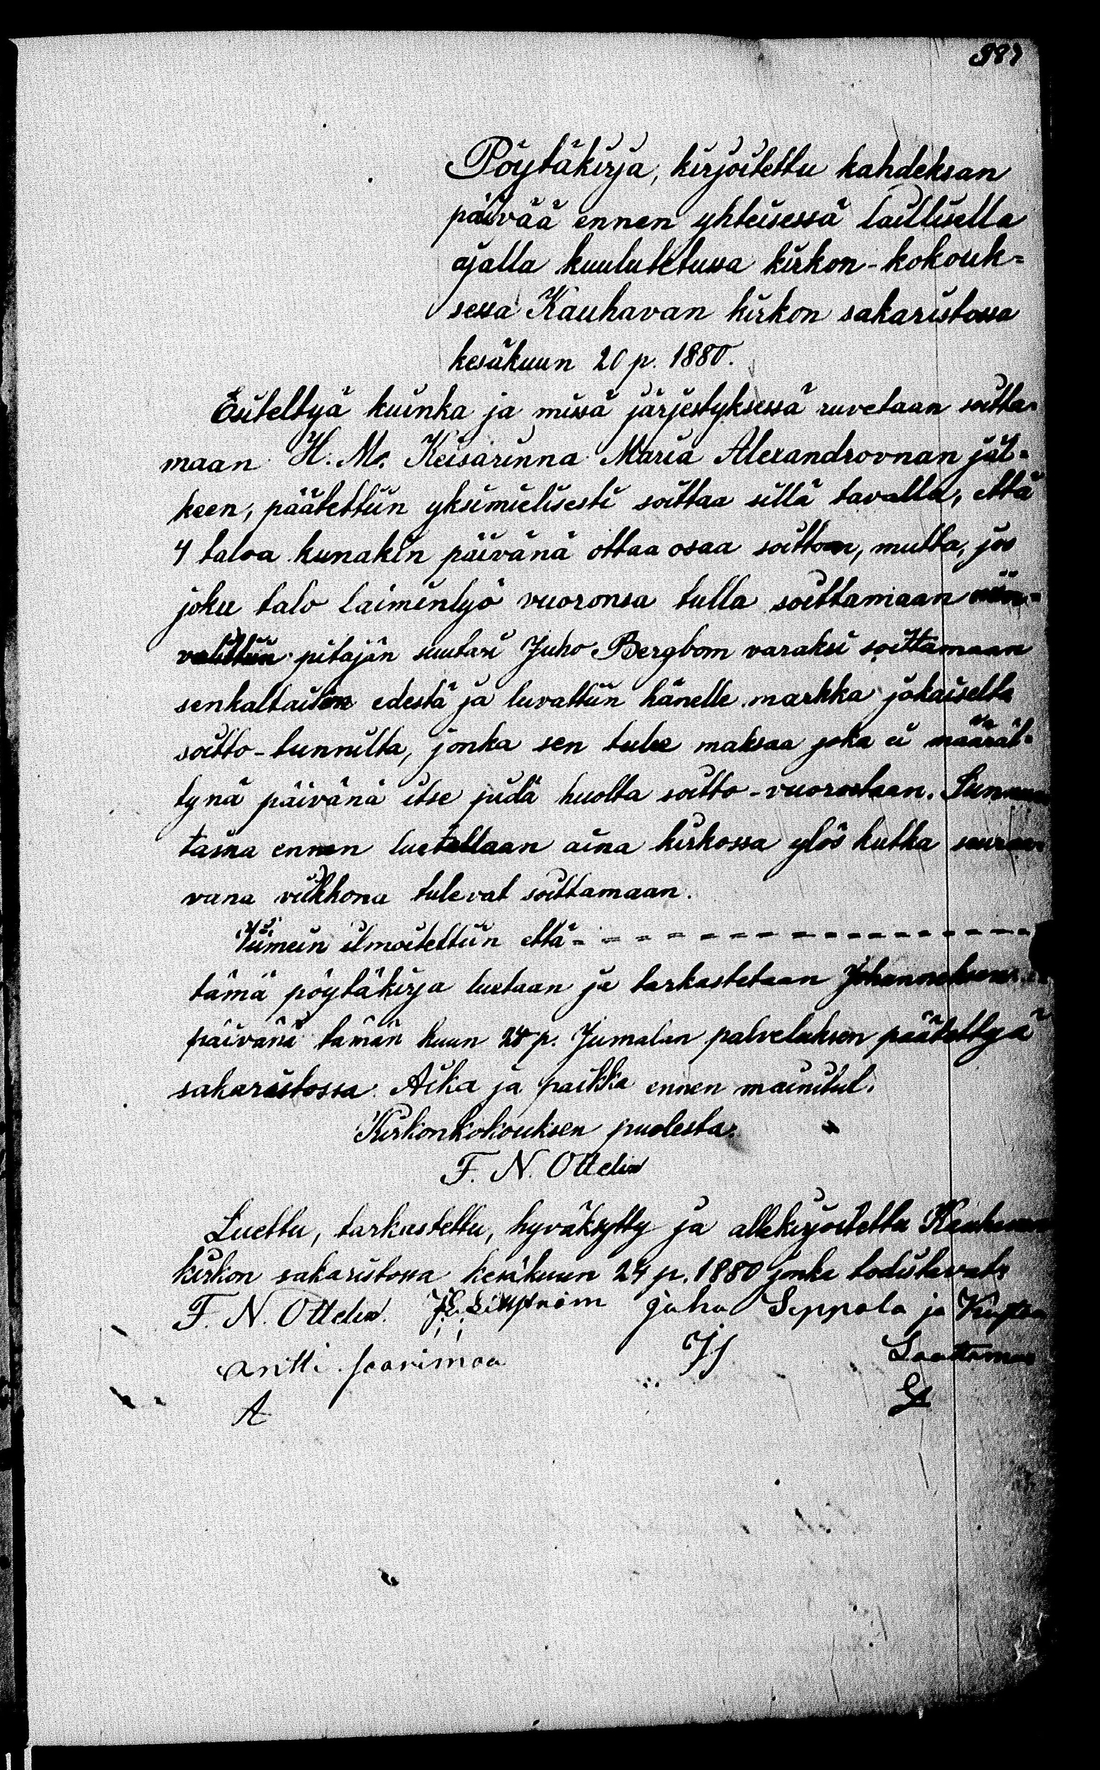 387
Pöytäkirja, kirjoitettu kahdeksan
päivää ennen yhteisessä laillisella
ajalla kuulutetussa kirkon-kokouk-
sessa Kauhavan kirkon sakaristossa
kesäkuun 20 p. 1880.
Esiteltyä kuinka ja missä järjestyksessä ruvetaan soitta-
maan H. M. Keisarinna Maria Alexandrovnan jäl-
keen, päätettiin yksimielisesti soittaa sillä tavalla, että
4 taloa kunakin päivänä ottaa osaa soittoon, mutta, jos
joku talo laiminlyö vuoronsa tulla soittamaan niin
valittiin pitäjän suutari Juho Bergbom varaksi soittamaan
senkaltaisten edestä ja luvattiin hänelle markka jokaiselta
soitto-tunnilta, jonka sen tulee maksaa joka ei määrät-
tynä päivänä itse pidä huolta soitto-vuorostaan. Sunnun-
taina ennen luetellaan aina kirkossa ylös kutka seuraa-
vana viikkona tulevat soittamaan.
Viimein ilmoitettiin että - - - - - - - - - - - - - - -
tämä pöytäkirja luetaan ja tarkastetaan Johanneksen
päivänä tämän kuun 24 p. Jumalan palveluksen päätettyä
sakaristossa. Aika ja paikka ennen mainitut.
Kirkonkokouksen puolesta:
F. N. Ottelin
Luettu, tarkastettu, hyväksytty ja allekirjoitettu Kauhavan
kirkon sakaristossa kesäkuun 24 p. 1880 jonka todistavat:
F. N. Ottelin. Juho Seppala ja
antti Saarimaa JS
A